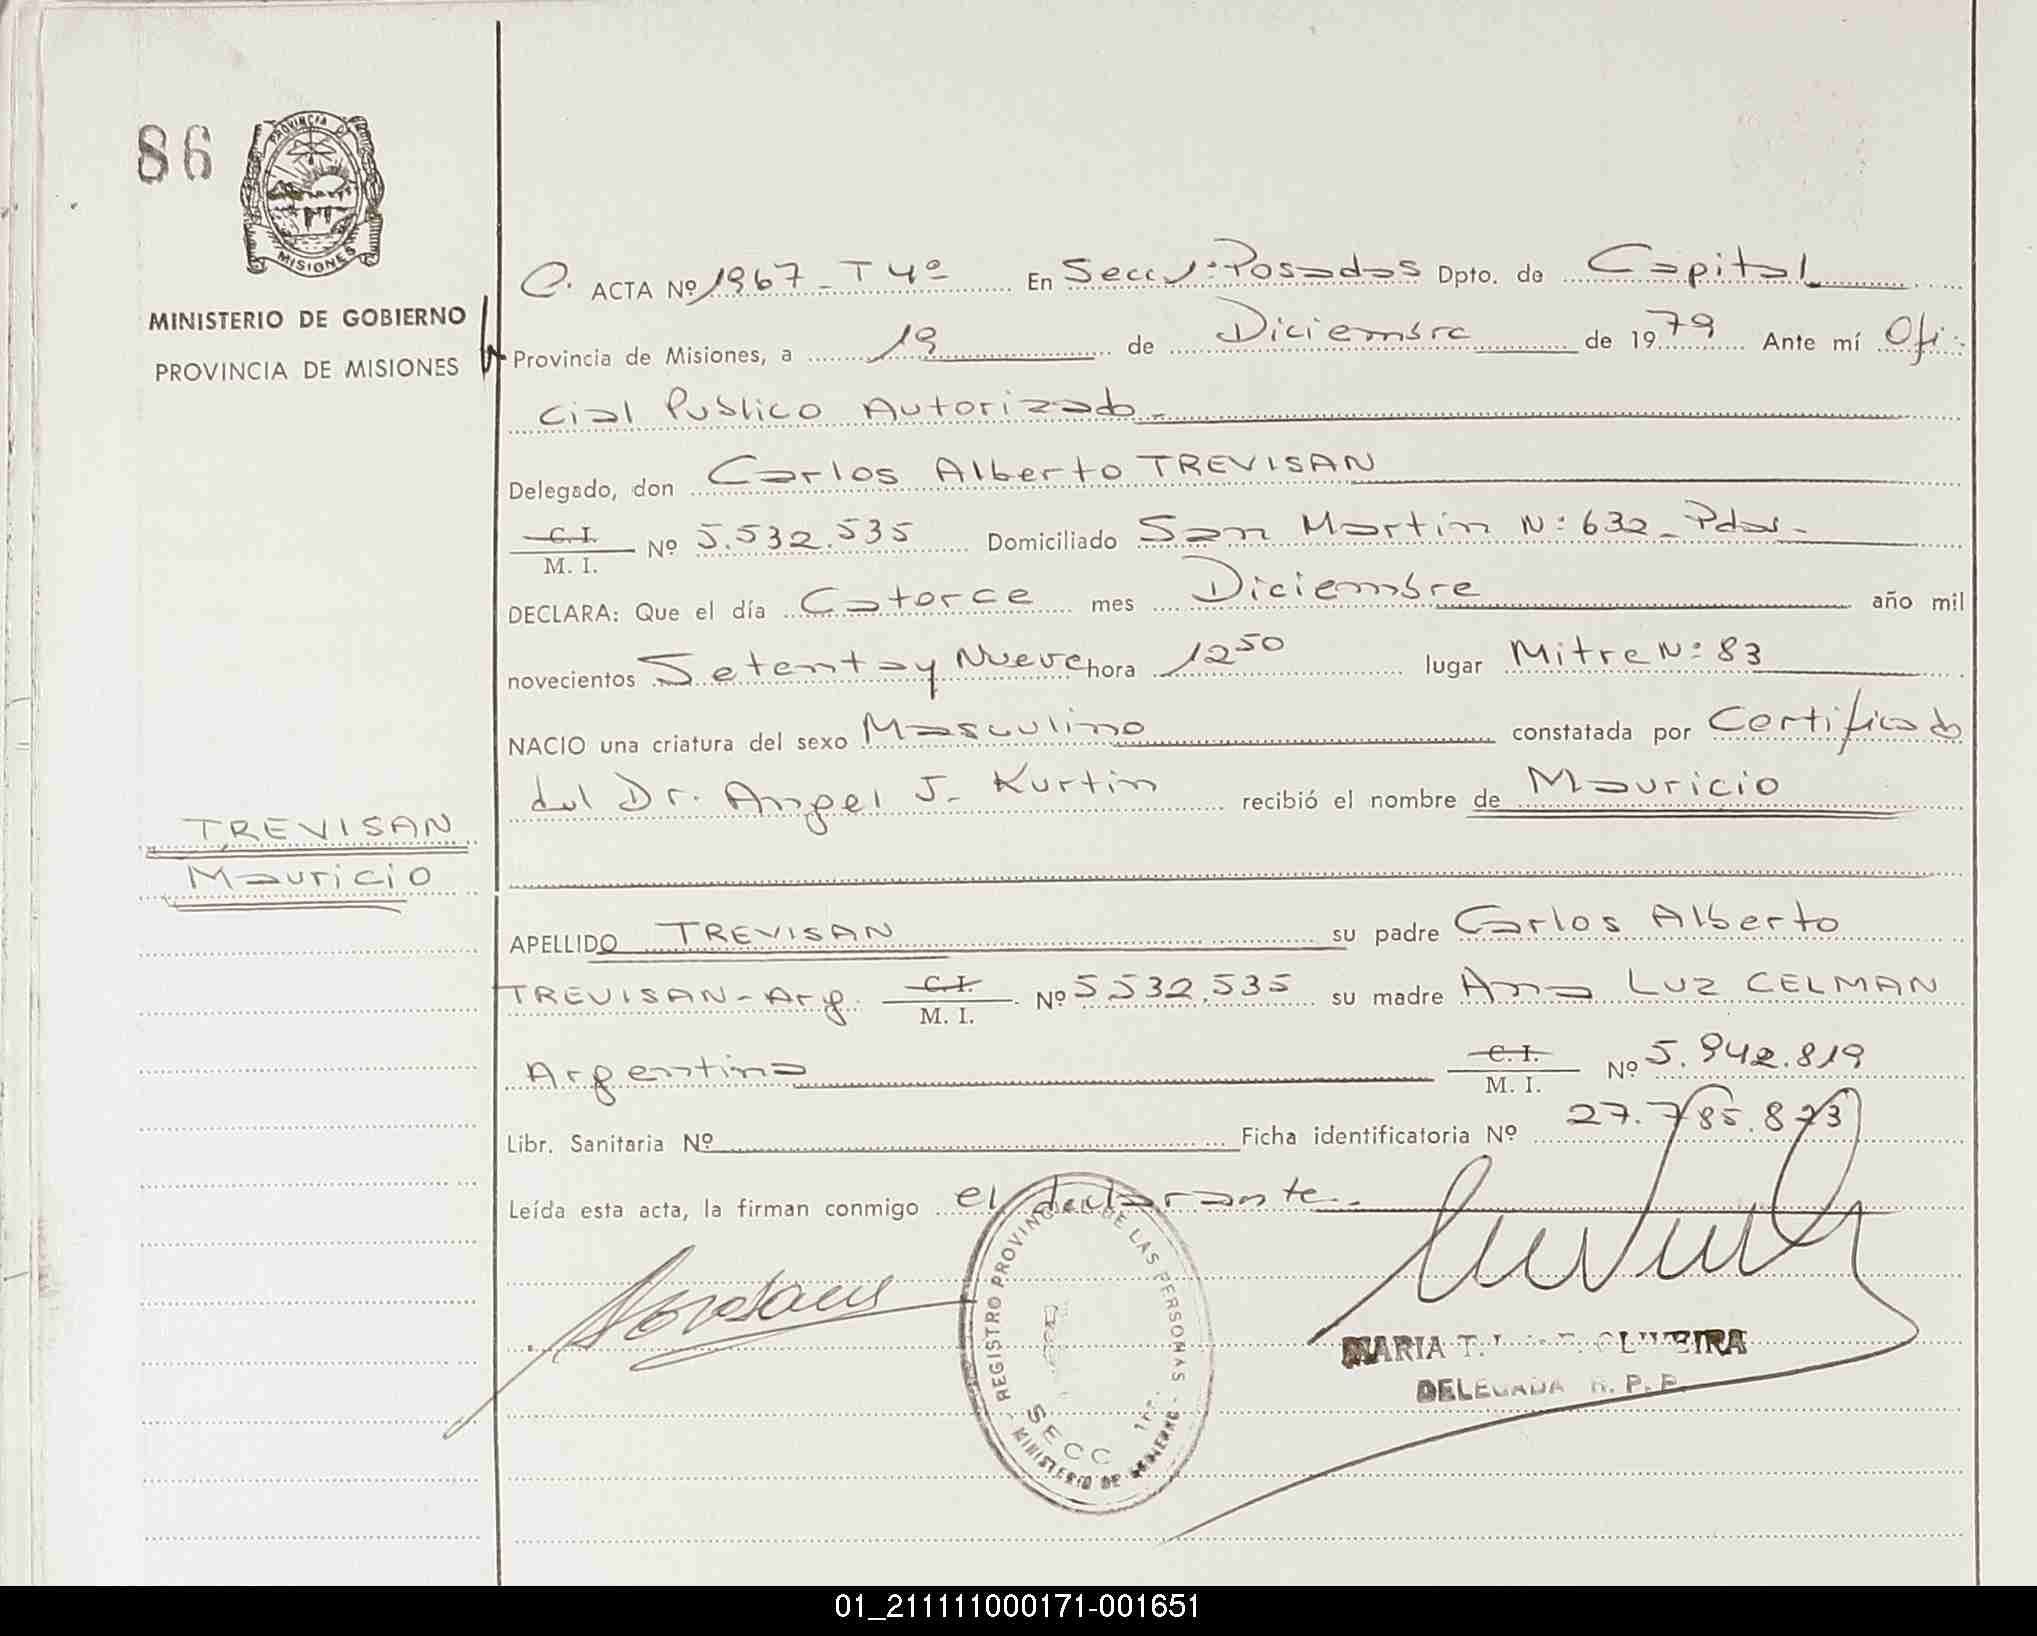 86
PROVINCIA DE
MISIONES
MINISTERIO DE GOBIERNO
PROVINCIA DE MISIONES
C. ACTA Nº 1967 - T 4º En Secc 1ª: Posadas Dpto. de Capital
Provincia de Misiones, a 19 de Diciembre de 1979 Ante mí Ofi-
cial Publico Autorizado -
Delegado, don Carlos Alberto TREVISAN
C. I.
M. I. Nº 5.532.535 Domiciliado San Martin Nº: 632 - Pdas -
DECLARA: Que el día Catorce mes Diciembre año mil
novecientos Setenta y Nueve hora 12 50 lugar Mitre Nº: 83
NACIO una criatura del sexo Masculino constatada por Certificado
del Dr. Angel J. Kurtin recibió el nombre de Mauricio
TREVISAN
Mauricio
APELLIDO TREVISAN su padre Carlos Alberto
TREVISAN - Arg. C. I.
M. I. Nº 5.532.535 su madre Ana Luz CELMAN
Argentina C. I.
M. I. Nº 5.942.819
Libr. Sanitaria Nº Ficha identificatoria Nº 27.785.873
Leída esta acta, la firman conmigo el declarante.
REGISTRO PROVINCIAL DE LAS PERSONAS
SECC
MINISTERIO DE GOBIERNO
MARIA T. OLIVEIRA
DELEGADA R. P. P.
01_211111000171-001651